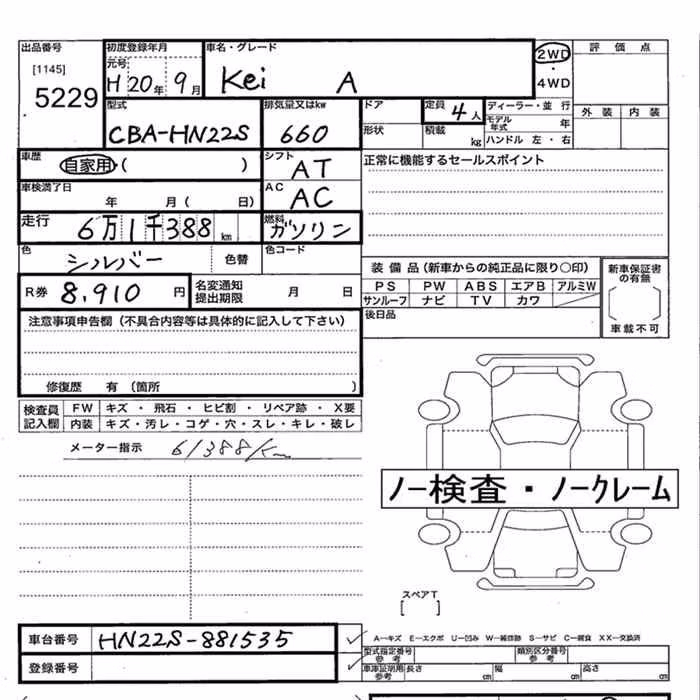 出品番号 初度登録年月 車名・グレード 2WD 評価点
[1145] 元号
5229 H 20年 9月 Kei A ・ 4WD
型式 排気量又はkw ドア 定員 4人 ディーラー・並行 外装 内装
CBA-HN22S 660 形状 積載 kg モデル年式 年
ハンドル 左・右
車歴 自家用・( ) シフト AT 正常に機能するセールスポイント
車検満了日 年 月( 日) AC AC
走行 6万1千388km 燃料 ガソリン
色 シルバー 色替 色コード
装備品(新車からの純正品に限り○印) 新車保証書の有無
R券 8,910円 名変通知提出期限 月 日 PS PW ABS エアB アルミW
サンルーフ ナビ TV カワ 車載不可
注意事項申告欄(不具合内容等は具体的に記入して下さい) 後日品
修復歴 有(箇所 )
検査員記入欄 FW キズ・飛石・ヒビ割・リペア跡・X要
内装 キズ・汚レ・コゲ・穴・スレ・キレ・破レ
メーター指示 61388km
ノー検査・ノークレーム
スペアT
[ ]
車台番号 HN22S-881535 A-キズ E-エクボ U-凹み W-補修跡 S-サビ C-腐食 XX-交換済
型式指定番号 参考 類別区分番号 参考
登録番号 車庫証明用参考 長さ cm 幅 cm 高さ cm